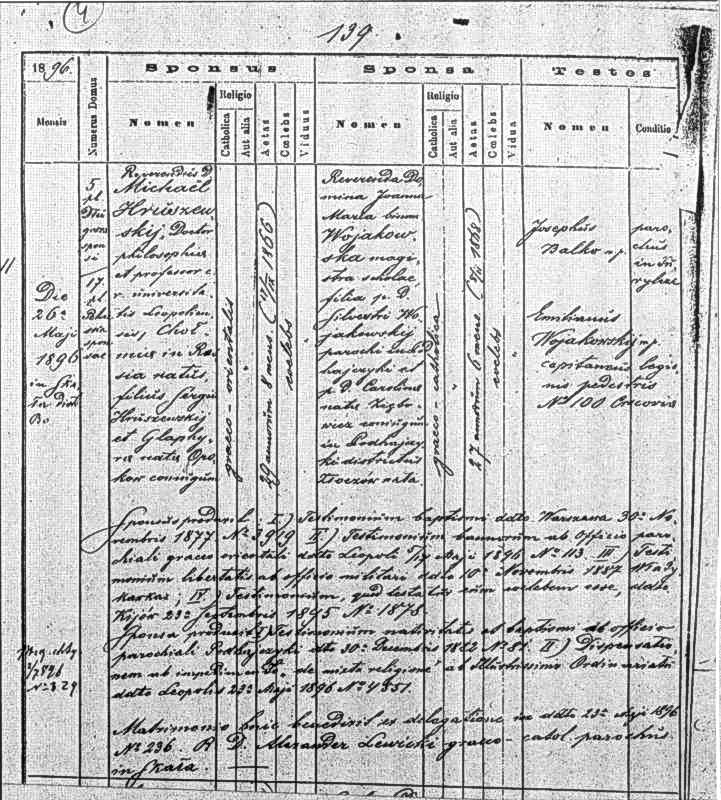 4
139
1896.
Sponsus
Sponsa
Testes
Mensis
Numerus Domus
Nomen
Religio
Catholica
Aut alia
Aetas
Coelebs
Viduus
Nomen
Religio
Catholica
Aut alia
Aetas
Coelebs
Vidua
Nomen
Conditio
11
Die
26ª
Maji
1896
in Ska
5
pl.
spon
si
17
pl.
spon
sae
Reverendus D.
Michaël
Hruszew
skij Doctor
philosophiae
et professor c.
r. universita
tis Leopolien
sis, Choł
mae in Ros
sia natus,
filius Sergii
Hruszewskij
et Glaphy
ra nata Opo
kow conjugum
graeco-orientalis
"
29 annorum 8 mens. (17/IX 1866)
coelebs
"
Reverenda Do
mina Joanna
Maria binom
Wojakow
ska magi
stra scholae,
filia p. D.
Silvestri Wo
jakowskij
parochi in Pod
hajczyki et
p. D. Carolina
nata
conjugum
in Podhajczy
ki districtus
Złoczów nata.
graeco-catholica
"
27 annorum 6 mens.
coelebs
"
Josephus
Balko mp.
paro,
chus
in
Emilianus
Wojakowskij mp.
capitaneus legio
nis pedestris
Nº 100 Cracovia
Sponsus produxit: I.) Testimonium baptismi ddto Warszawa 30ª No,
vembris 1877 Nº 3919 II.) Testimonium bannorum ab Officio paro,
chiali graeco orientali ddto Leopoli 5/17 Maji 1896 Nº 113. III) Testi
monium libertatis ab officio militari ddto 10ª Novembris 1887
IV.) Testimonium, quod testatur eum coelebem esse, ddto
Kijów 23ª Septembris 1895 Nº 1878
Sponsa produxit I) Testimonium nativitatis et baptismi ab officio
parochiali Podhajczyki dto 30ª Decembris 1882 Nº 81. II) Dispensatio,
nem ab impedimento "de mixta religione" ab Illustrissimo Ordinariatu
ddto Leopolis 23ª Maji 1896 Nº 4351.
1896
Nº 829
Matrimonio huic benedixit ex delegatione in ddto 23ª Maji 1896
Nº 236. R. D. Alexander Lewicki graeco-catol. parochus
in Skała.